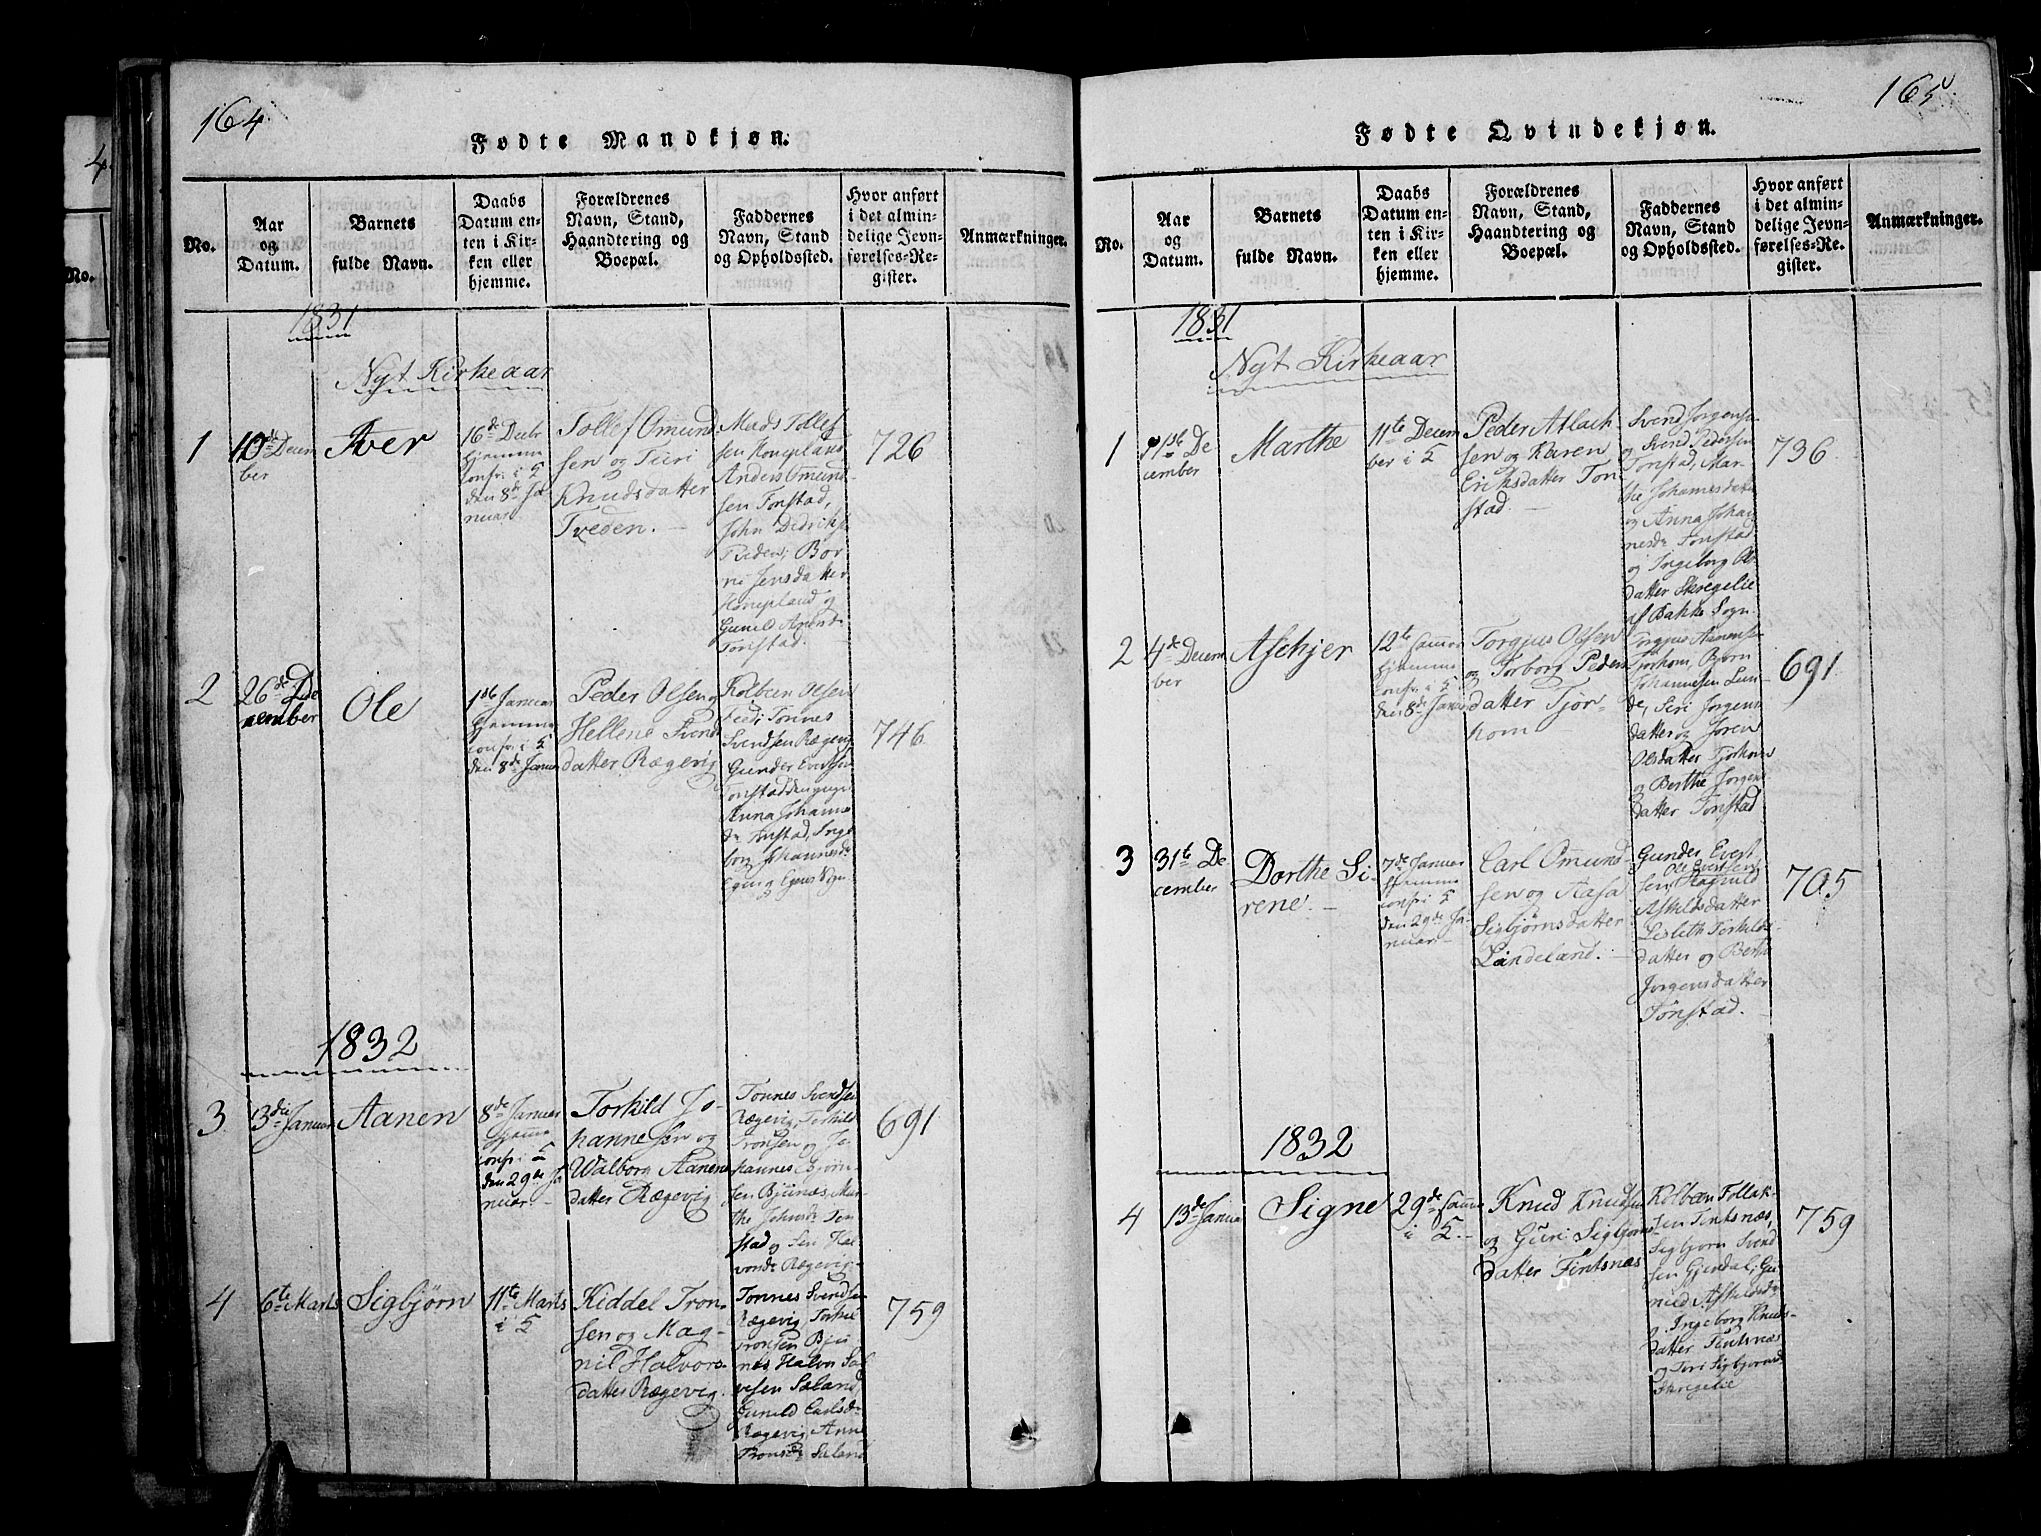 164
Fødte Mandkjøn.
No.
Aar
og
Datum.
Barnets
fulde Navn.
Daabs
Datum en-
ten i Kir-
ken eller
hjemme.
Forældrenes
Navn, Stand,
Haandtering og
Boepæl.
Faddernes
Navn, Stand
og Opholdssted.
Hvor anført
i det almin-
delige Jevn-
førelses-Re-
gister.
Anmærkninger.
1831
Nyt Kirkeaar
1
10de Decem
ber
Iver
16de Decbr
hjemme
confr. i 5
den 8de Ja-
nuar
Tollef Omund-
sen og Turi
Knudsdatter
Tveden.
Mads Tollef
sen Konepland
Anders Omund-
sen Tonstad,
John Didriks
Tveden, Bor-
ni Jensdatter
Konepland og
Gunild
Tonstad.
726
2
26de De
cember
Ole
1ste Januar
hjemme
confr. i 5
den 8de Januar
Peder Olsen og
Hellene Svends
datter Rægevig
Kolbeen Olsen
Tonnes
Svendsen Rægevig
Gunder Evertsen
Tonstad
Anna Johanne
Tonstad, Inge
borg Johannesd
746
1832
3
3die Januar
Aanen
8de Januar
hjemme
confr. i 5
den 29de Ja
nuar
Torkild Jo-
hannesen og
Walborg Aanens
datter Rægevig
Tonnes Svendsen
Rægevig, Torkild
Tronsen og Jo-
hannes Bjørn-
sen Bjunæs, Mar-
the Johnsd Ton
stad og
Rægevig
691
4
6te Marts
Sigbjørn
11te Marts
i 5
Kiddel Tron-
sen og Mag-
nil Halvors-
datter Rægevig.
Tonnes Svendsen
Rægevig Torkil
Tronsen Bju
nes Halvor Sal
vesen Saland
Gunild Carlsd
Rægevig, Anne
Tronsd Saland
759
165
Fødte Qvindekjøn.
No.
Aar
og
Datum.
Barnets
fulde Navn.
Daabs
Datum en-
ten i Kir-
ken eller
hjemme.
Forældrenes
Navn, Stand,
Haandtering og
Boepæl.
Faddernes
Navn, Stand
og Opholdssted.
Hvor anført
i det almin-
delige Jevn-
førelses-Re-
gister.
Anmærkninger.
1831
Nyt Kirkeaar
1
1ste De
cember
Marthe
11te Decem
ber i 5
Peder Atlach
sen og Karen
Eriksdatter Ton
stad.
Svend Jorgense
og Svend Pedersen
Tonstad, Mar-
the Johannesdatter
og Anna Johan
nesd Tonstad
og Ingeborg Ols
datter Skregelie
af Bakke Sogn
736
2
4de Decem
ber
Aschjer
12te
hjemme
confr. i 5
den 8de Januar
Torgjus Olsen
og Torborg Peders
datter Tjor-
hom
Torgjus Aanense
Tjorhom, Bjorn
Johannesen Lun-
de, Siri Jorgens
datter og Joren
Olsdatter Tjorhom
og Berthe Jorgens
datter Tonstad
691
3
31te De
cember
Dorthe Si-
rene.
7de Januar
hjemme
confr. i 5
den 29de Ja-
nuar
Carl Omund-
sen og Aasa
Sigbjørnsdatter
Lindeland.
Gunder Evert
Ole Evertsen
sen, Ragnild
Aschildsdatter
Lisbeth Torkilds
datter og Berthe
Jorgensdatter
Tonstad.
705
1832
4
13de Januar
Signe
29de
i 5.
Knud Knudsen
og Guri Sigbjørns-
datter Fintsnæs
Kolbeen Tollak-
sen Fintsnæs,
Sigbjorn Svend
sen Gjendal, Gu-
nild Aschildsd
og Ingeborg Knuds-
datter Fintsnæs
og Siri Sigbjornsd
Skregelie
759
4
No.